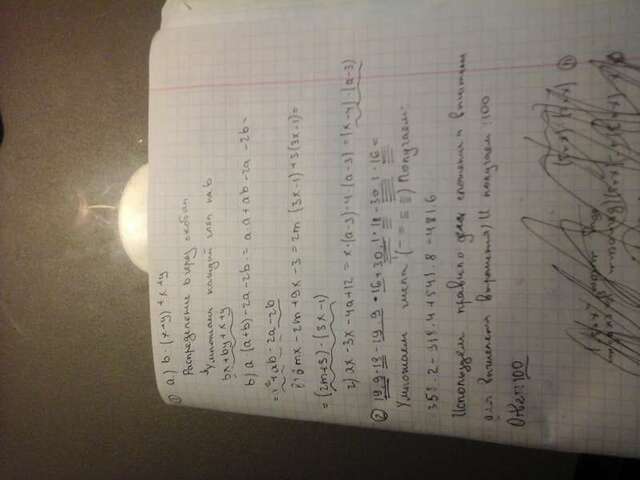 ① а) b·(x+y)+x+y
Распределение через скобки
Умножаем каждый член на b
bx+by+x+y
b) a(a+b)-2a-2b = a·a+ab-2a-2b=
+ab-2a-2b
6mx-2m+9x-3=2m(3x-1)+3(3x-1)=
=(2m+3)·(3x-1)
г) ax-3x-4a+12=x·(a-3)-4(a-3)=(x-4)·(a-3)
② 19,9·18-19,9·16+30,1·18-30,1·16=
Умножаем числа Получаем:
358,2-318,4+541,8-481,6
Используем правило для сложения и вычитания
для вычисления выражения) И получаем :100
Ответ:100